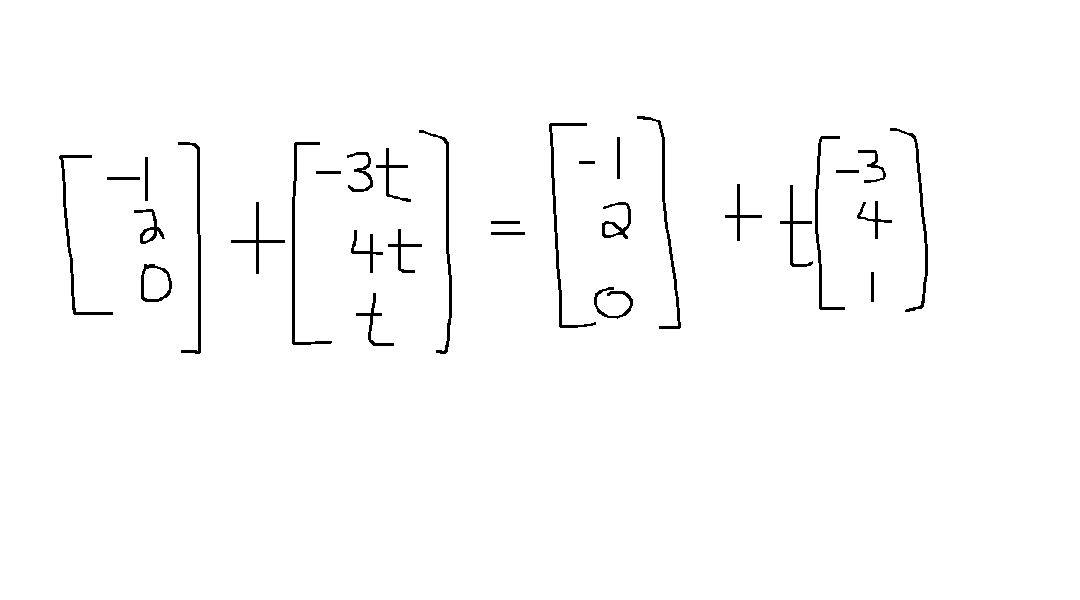 [-1 2 0] + [-3t 4t t] = [-1 2 0] + t[-3 4 1]